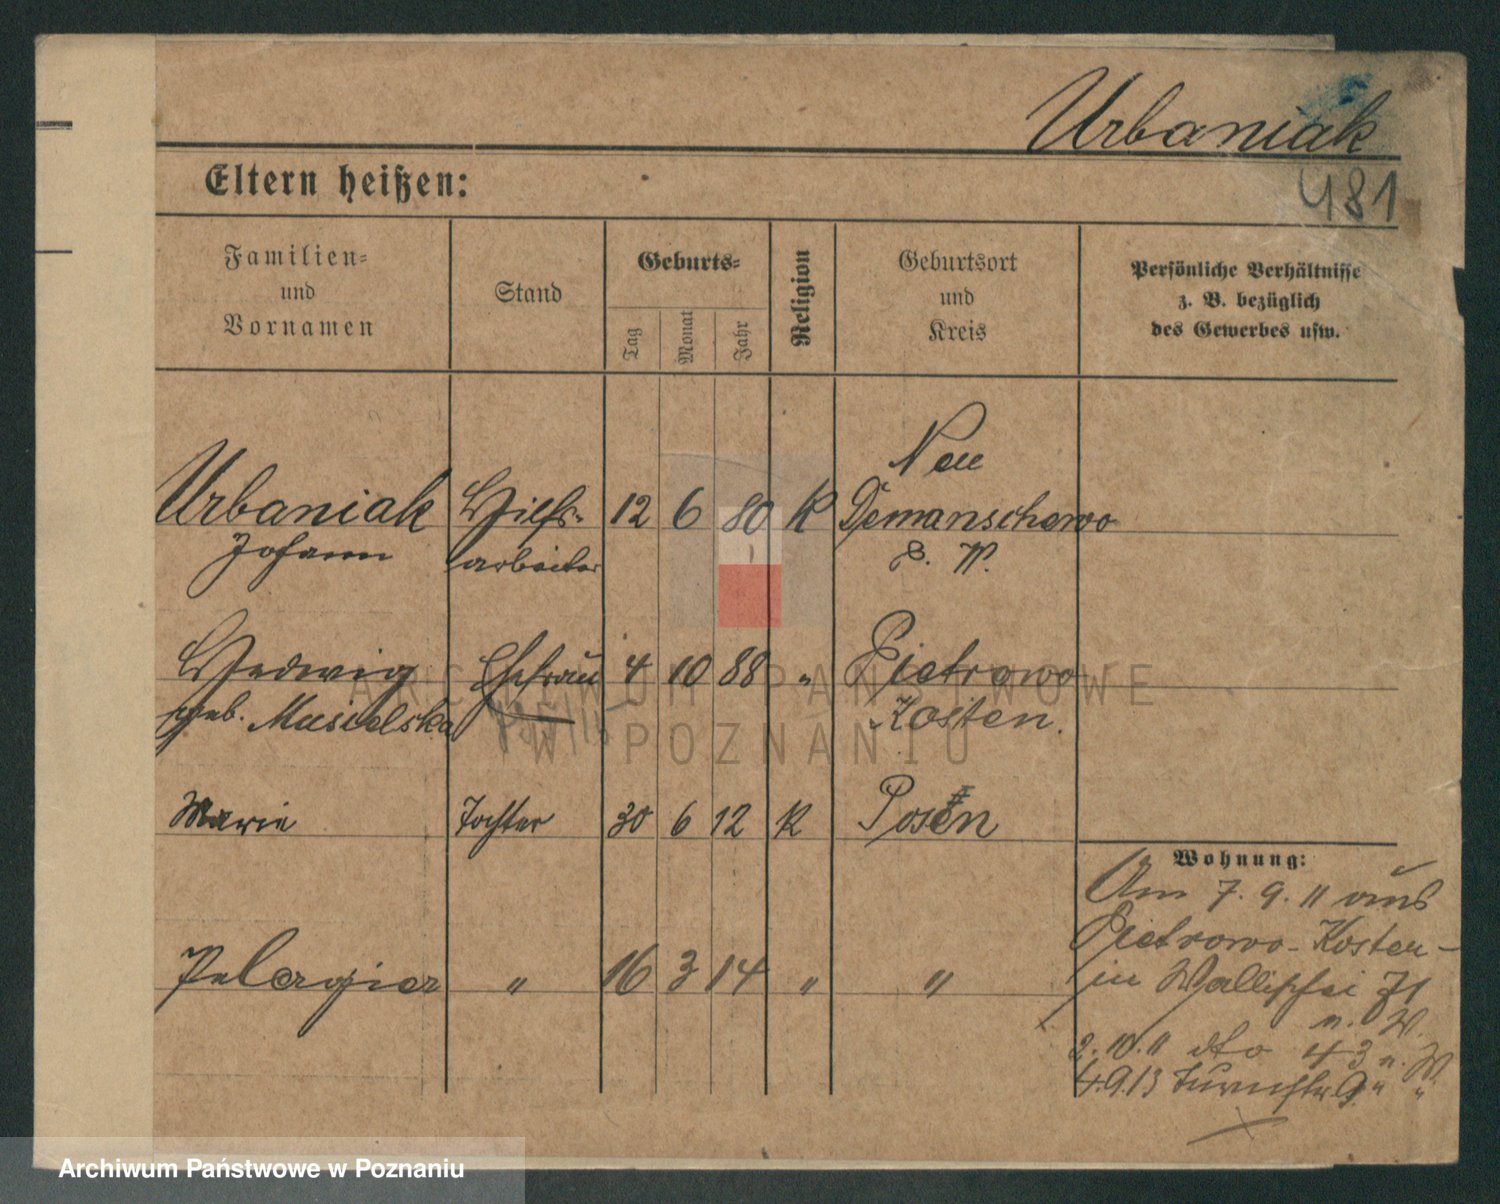 Urbaniak
481
Eltern heißen:
Familien- und Vornamen
Stand
Geburts-
Tag
Monat
Jahr
Religion
Geburtsort und Kreis
Persönliche Verhältnisse z. B. bezüglich des Gewerbes usw.
Neu
Urbaniak Hilfs- 12 6 80 K Demanschewo
Johann arbeiter P. W.
Hedwig Ehefrau 4 10 88 " Pietrowo
geb. Musielska Kosten.
Marie Tochter 30 6 12 K Posen
Pelagia " 16 3 14 " "
Wohnung:
Am 7. 9. 11 aus
Pietrowo-Kosten-
in Wallischei 71
n. W
2. 10. 11 dto 43 n. W
4.9.13 Turmstr. 9 " "
ARCHIWUM PAŃSTWOWE
W POZNANIU
Archiwum Państwowe w Poznaniu